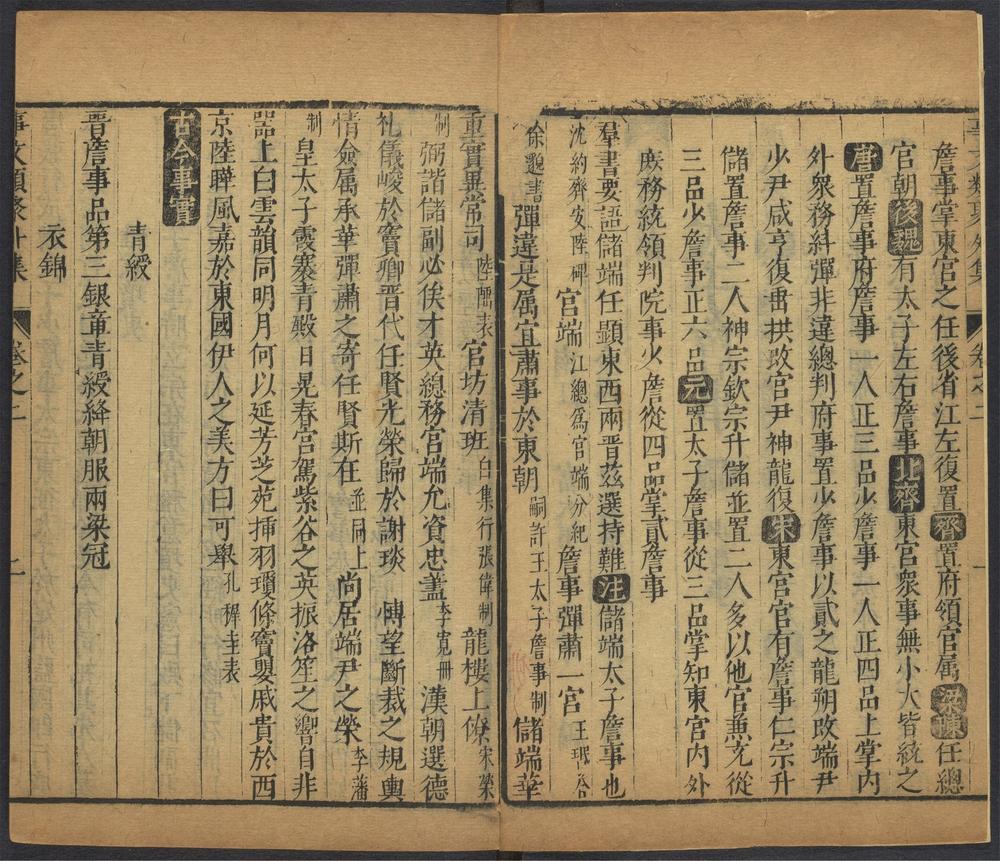 事文類聚外集 卷之二 一
詹事掌東宮之任後省江左復置齊置府領官属梁陳任總
官朝後魏有太子左右詹事北齊東宮衆事無小大皆統之
唐置詹事府詹事一人正三品少詹事一人正四品上掌内
外衆務糾彈非違總判府事置少詹事以貳之龍朔改端尹
少尹咸亨復舊垂拱改宫尹神龍復宋東宮官有詹事仁宗升
儲置詹事二人神宗欽宗升儲並置二人多以他官兼充從
三品少詹事正六品元置太子詹事從三品掌知東宮内外
庻務統領判院事少詹從四品掌貳詹事
羣書要語儲端任顯東西兩晋兹選持難注儲端太子詹事也
沈約齊安陸碑 宫端 江總爲宮端分紀 詹事彈肅一宫 王珉答
徐邈書 彈違是属宜肅事於東朝 嗣許王太子詹事制 儲端華
重實異常司 陸 表 官坊清班 白集行張偉制 龍樓上僚 宋榮
制 弼諧儲副必俟才英總務宫端允資忠藎 李寛冊 漢朝選德
礼儀峻於竇卿晋代任賢光榮歸於謝琰 博望斷裁之規輿
情僉属承華彈肅之寄任賢斯在 並同上 尚居端尹之榮 李藩
制 皇太子霞褰青殿日晃春宫駕紫谷之英振洛笙之響自非
噐上白雲韻同明月何以延芳芝苑揷羽瓊條竇嬰戚貴於西
京陸曄風嘉於東國伊人之美方曰可舉 孔稺圭表
古今事實
青綬
晋詹事品第三銀章青綬絳朝服兩梁冠
衣錦
事文類聚外集 卷之二 一